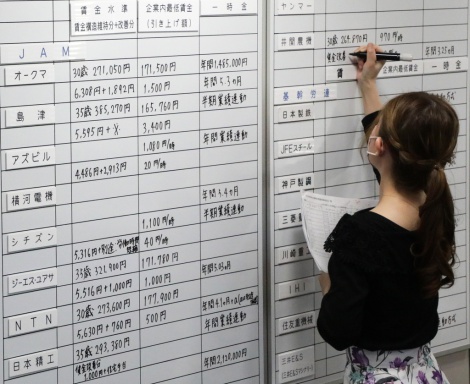 賃金水準
賃金構造維持分+改善分
企業内最低賃金
(引き上げ額)
一時金
JAM
オークマ
30歳 271,050円
171,500円
年間1,485,000円
6,308円+1,892円
1,500円
年間5.3ヵ月
島津
35歳 385,270円
165,760円
半期業績連動
5,595円+
3,400円
アズビル
1,080円/時
年間業績連動
4,486円+2,913円
20円/時
横河電機
年間5.4ヵ月
半期業績連動
シチズン
1,100円/時
5,316円+
40円/時
ジーエス・ユアサ
35歳 321,900円
171,780円
年間5.03ヵ月
5,516円+1,000円
1,000円
NTN
30歳 273,600円
177,900円
5,630円+760円
500円
年間業績連動
日本精工
35歳 293,380円
年間2,120,000円
ヤンマー
井関農機
30歳 264,870円
970円/時
賃
企業内最低賃金
一時金
基幹労連
日本製鉄
JFEスチール
神戸製鋼
三菱
川崎重
IHI
住友重機械
三井E&S